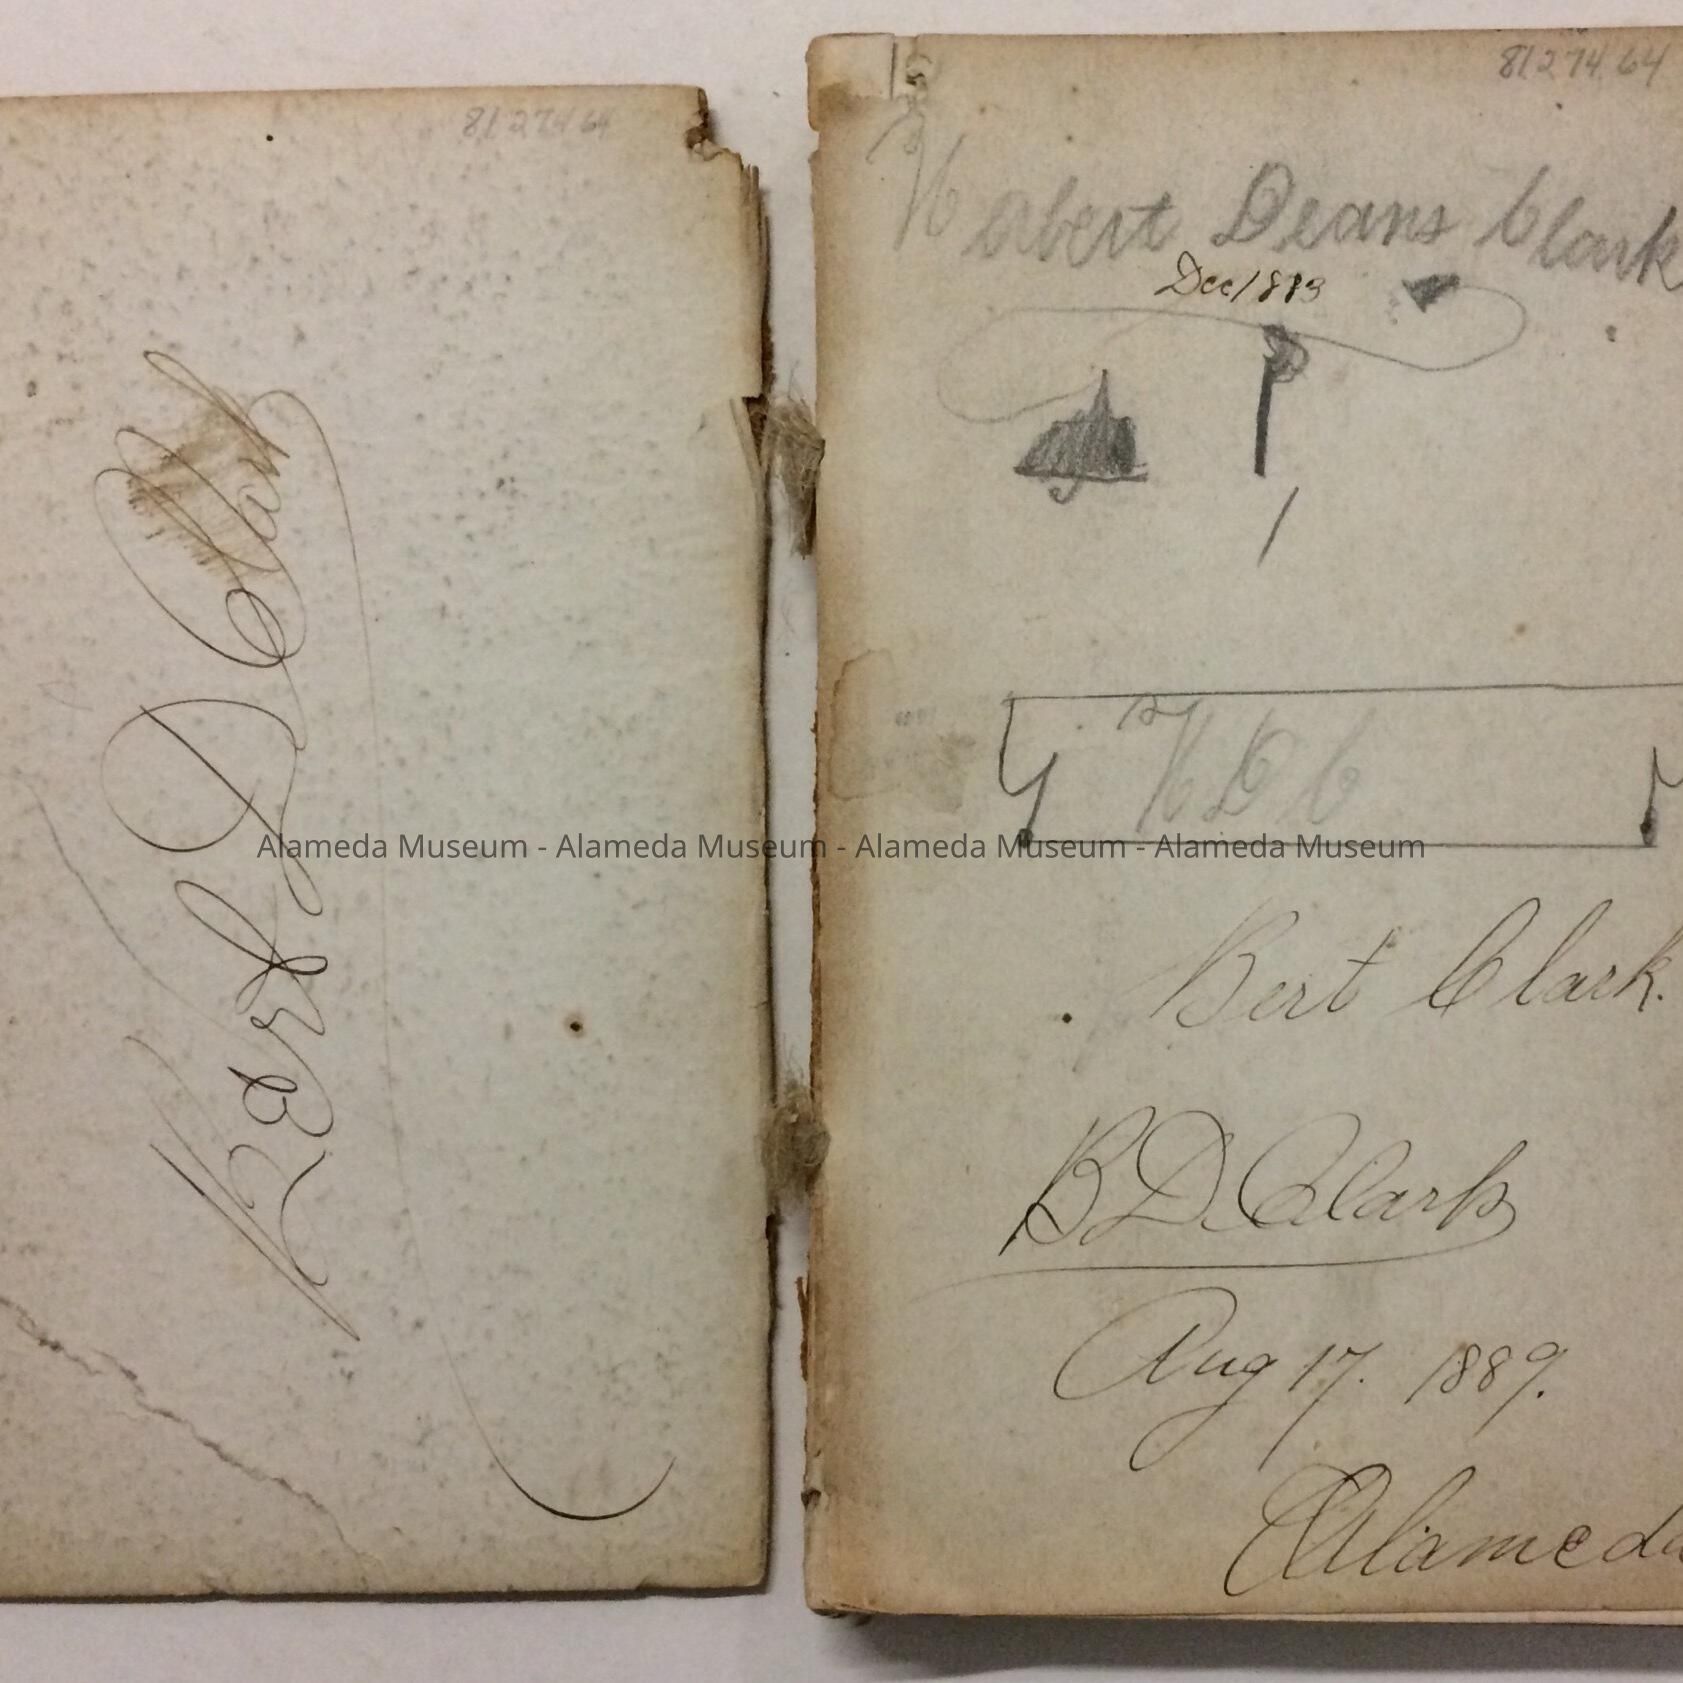 81 27 44 64
Bert D Clark
81 2 74 64
Herbert Deans Clark
Dec 1883
H D C
Bert Clark.
B D Clark
Aug 17. 1889.
Alameda
Alameda Museum - Alameda Museum - Alameda Museum - Alameda Museum